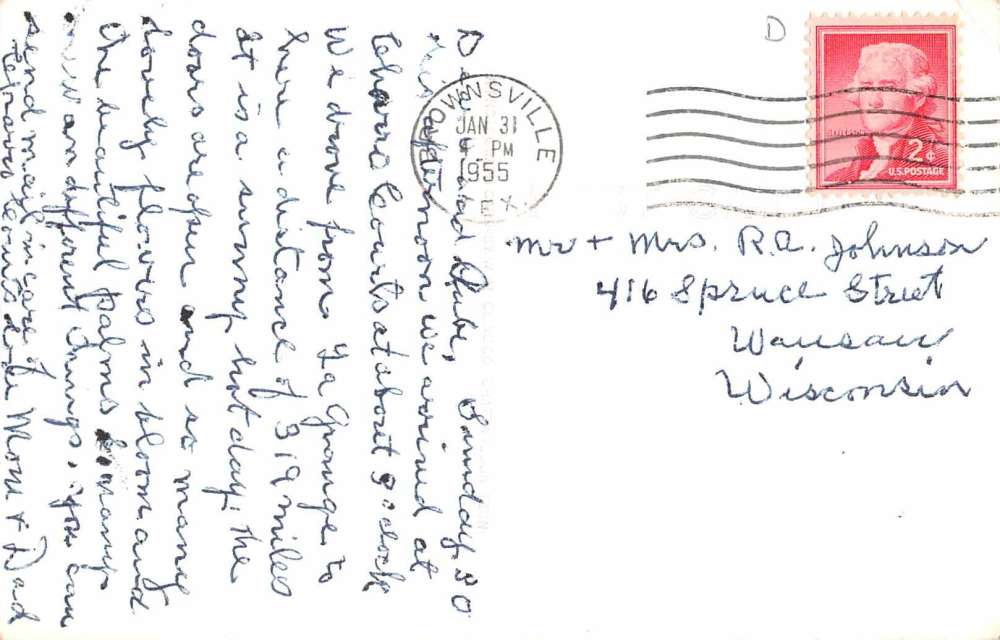 Dear and Rube, Sunday, 30
this afternoon we arrived at
Charro Courts at about 3 o clock
We drove from La Grange to
here a distance of 319 miles
It is a sunny hot day. the
doors are open and so many
lovely flowers in bloom and
the beautiful palms & many
different things. you can
send mail in care of
Charro Courts love Mom & Dad
D
OWNSVILLE
JAN 31
PM
1955
TEX.
JEFFERSON
2¢
U.S. POSTAGE
Mr + Mrs. R.A. Johnson
416 Spruce Street
Wausau
Wisconsin